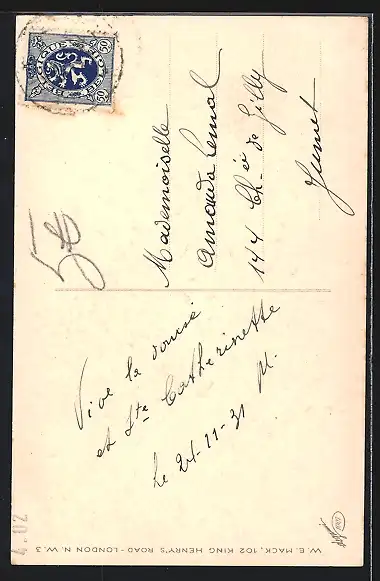 BELGIQUE BELGIE
50 50
Mademoiselle
Amanda Lemal
144 Ch-ée de Gilly
Jumet
5€
Vive la
et Ste Catherinette
Le 24-11-31 M.
W. E. MACK, 102 KING HENRY'S ROAD - LONDON N. W. 3
4.02